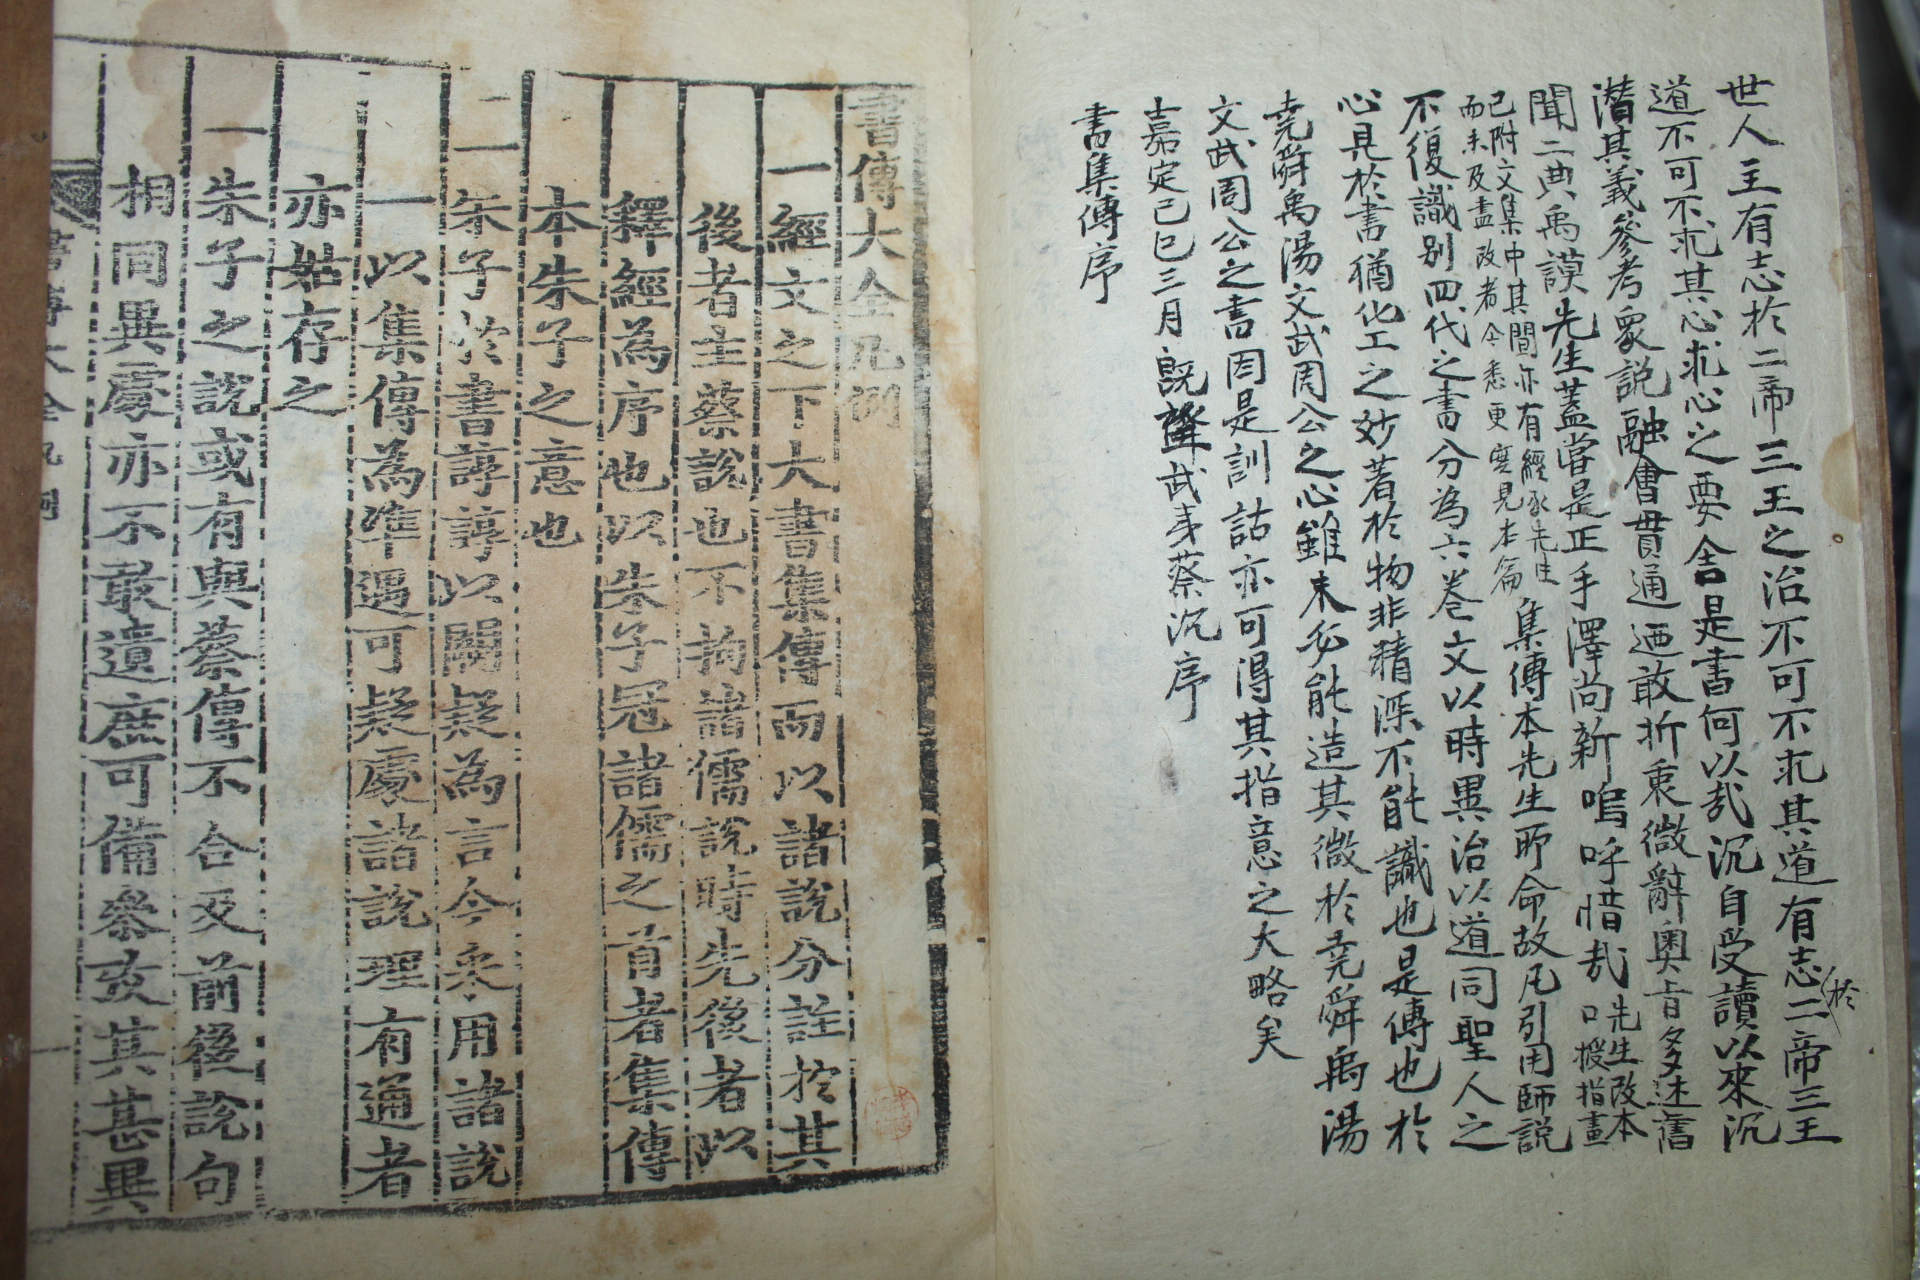 世人主有志於二帝三王之治不可不求其道有志二帝三王
於
道不可不求其心求心之要舍是書何以哉沉自受讀以來沉
潛其義參考衆說融會貫通迺敢折衷微辭奧旨多述舊
聞二典禹謨先生蓋嘗是正手澤尚新嗚呼惜哉先生改本
口授指畫
已附文集中其間亦有經承先生
而未及盡改者今悉更定見本篇
集傳本先生所命故凡引用師說
不復識別四代之書分為六卷文以時異治以道同聖人之
心見於書猶化工之妙著於物非精深不能識也是傳也於
堯舜禹湯文武周公之心雖未必能造其微於堯舜禹湯
文武周公之書因是訓詁亦可得其指意之大略矣
嘉定己巳三月既望武夷蔡沉序
書集傳序
書傳大全凡例
一經文之下大書集傳而以諸說分註於其
後者主蔡說也不拘諸儒說時先後者以
釋經為序也以朱子冠諸儒之首者集傳
本朱子之意也
一朱子於書諄諄以闕疑為言今采用諸說
一以集傳為準過可疑處諸說理有通者
亦姑存之
一朱子之說或有與蔡傳不合及前後說句
相同異處亦不敢遺庶可備參攷其甚異
書傳大全凡例
一